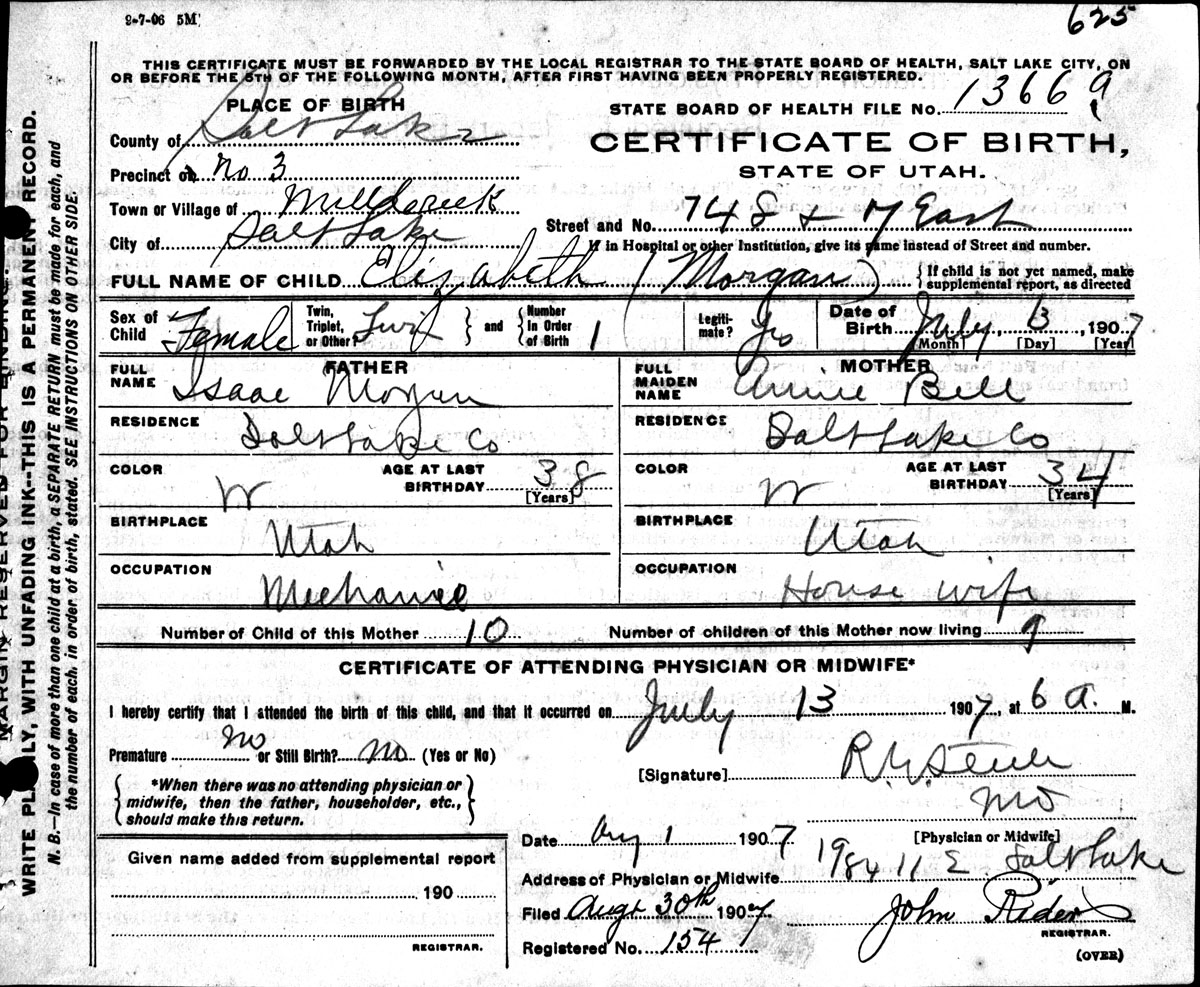 9-7-06 5M
625
THIS CERTIFICATE MUST BE FORWARDED BY THE LOCAL REGISTRAR TO THE STATE BOARD OF HEALTH, SALT LAKE CITY, ON
OR BEFORE THE 5TH OF THE FOLLOWING MONTH, AFTER FIRST HAVING BEEN PROPERLY REGISTERED.
PLACE OF BIRTH
County of Salt Lake
Precinct of No 3
Town or Village of Millcreek
City of Salt Lake
STATE BOARD OF HEALTH FILE No. 13669
CERTIFICATE OF BIRTH,
STATE OF UTAH.
Street and No. 748 & 7 East
If in Hospital or other Institution, give its name instead of Street and number.
FULL NAME OF CHILD Elizabeth (Morgan) {If child is not yet named, make
supplemental report, as directed
Sex of Child Female
Twin, Triplet, or Other? Twin
and Number in Order of Birth 1
Legiti-mate? Yes
Date of Birth July 13, 1907
[Month] [Day] [Year]
FATHER
FULL NAME Isaac Morgan
RESIDENCE Salt Lake Co
COLOR W
AGE AT LAST BIRTHDAY 38
[Years]
BIRTHPLACE Utah
OCCUPATION Mechanic
MOTHER
FULL MAIDEN NAME Annie Bell
RESIDENCE Salt Lake Co
COLOR W
AGE AT LAST BIRTHDAY 34
[Years]
BIRTHPLACE Utah
OCCUPATION House wife
Number of Child of this Mother 10 Number of children of this Mother now living 9
CERTIFICATE OF ATTENDING PHYSICIAN OR MIDWIFE*
I hereby certify that I attended the birth of this child, and that it occurred on July 13 1907, at 6 A. M.
Premature no or Still Birth? no (Yes or No)
{*When there was no attending physician or
midwife, then the father, householder, etc.,
should make this return.}
[Signature] R. MD
[Physician or Midwife]
Given name added from supplemental report
190
REGISTRAR.
Date Aug 1 1907
Address of Physician or Midwife 1984 11 E. Salt Lake
Filed Augt 30th 1907 John Rider
REGISTRAR.
Registered No. 154
(OVER)
MARGIN RESERVED FOR BINDING.
WRITE PLAINLY, WITH UNFADING INK--THIS IS A PERMANENT RECORD.
N. B.—In case of more than one child at a birth, a SEPARATE RETURN must be made for each, and
the number of each, in order of birth, stated. SEE INSTRUCTIONS ON OTHER SIDE.